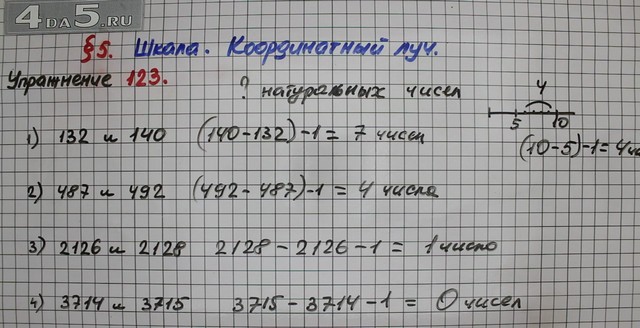 4DA5.RU
§5. Шкала. Координатный луч.
Упражнение 123.
? натуральных чисел
4
5 10
(10-5)-1=4чи
1) 132 и 140 (140-132)-1= 7 чисел
2) 487 и 492 (492-487)-1 = 4 числа
3) 2126 и 2128 2128-2126-1= 1 число
4) 3714 и 3715 3715-3714-1 = 0 чисел